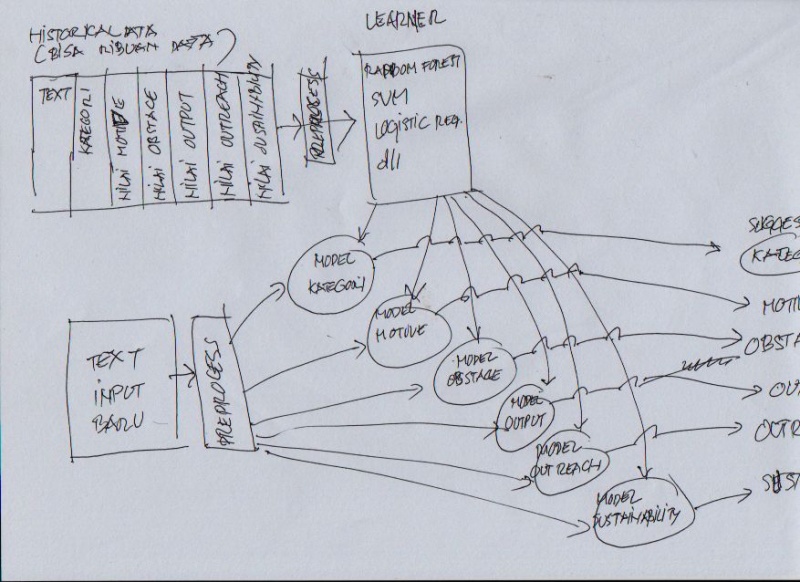 HISTORICAL DATA
(BISA RIBUAN DATA)
LEARNER
TEXT
KATEGORI
NILAI MOTIVE
NILAI OBSTACE
NILAI OUTPUT
NILAI OUTREACH
NILAI SUSTAINABILITY
PREPROCESS
RANDOM FOREST
SVM
LOGISTIC REG.
dll
MODEL
KATEGORI
SUGGES
KATEG
MODEL
MOTIVE
MOTI
MODEL
OBSTACE
OBSTA
TEXT
INPUT
BARU
PREPROCESS
MODEL
OUTPUT
OUT
MODEL
OUTREACH
OUTR
MODEL
SUSTAINABILITY
SUST